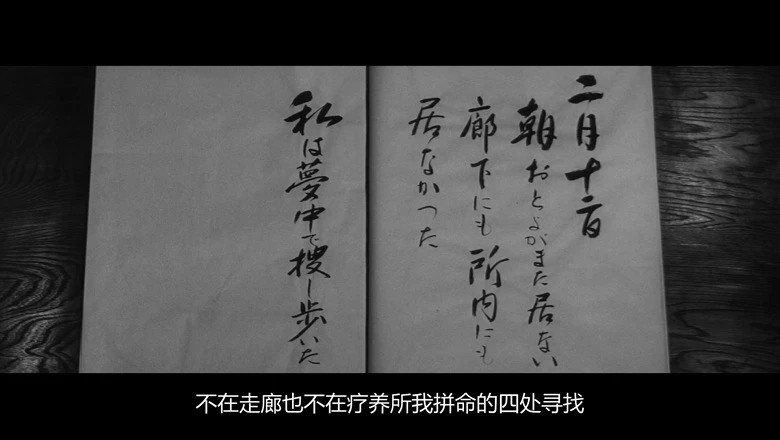 二月十二日
朝おとよがまた居ない
廊下にも所内にも
居なかつた
私は夢中で捜し歩いた
不在走廊也不在疗养所我拼命的四处寻找